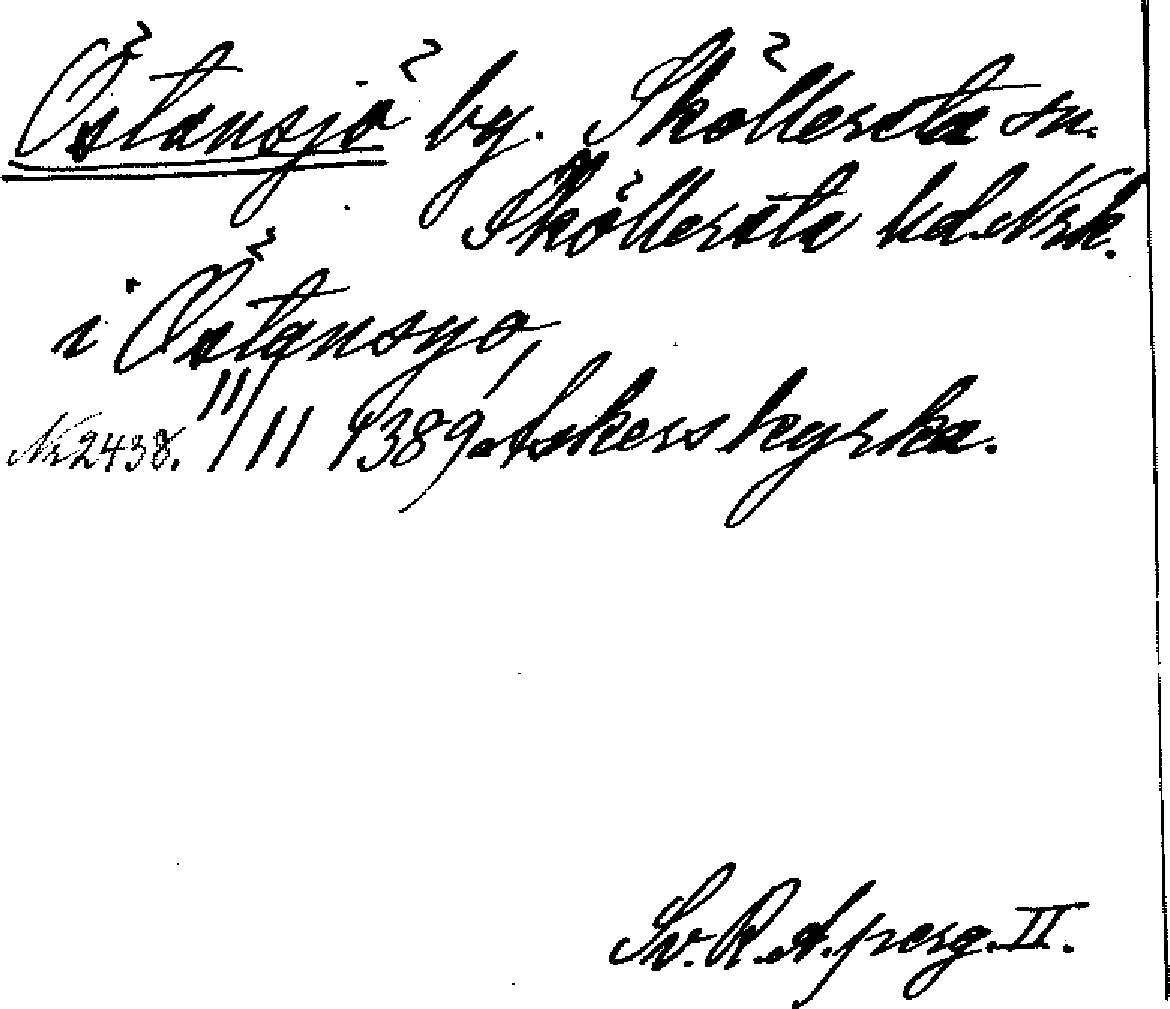 Östansjö by. Sköllersta sn.
Sköllersta hd. Nrk.
i Östansyo,
Nr 2438. 11/11 1389, Askers kyrka.
Sv. R. A. perg. II.